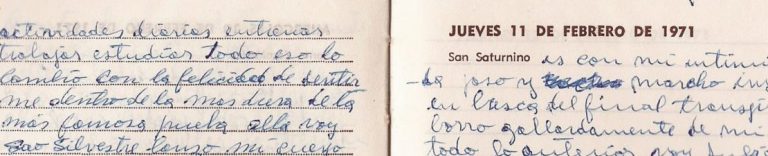 actividades diarias entierros
trabajos estudios todo eso lo
cambio con la felicidad de sentir
me dentro de la mas dura de la
más famosa puerta alla voy
Sao Silvestre lanzo mi cuerpo
JUEVES 11 DE FEBRERO DE 1971
San Saturnino
es con mi intimi
da paso y marcho
en busca del final
borro gallardamente de mi
todo lo anterior voy